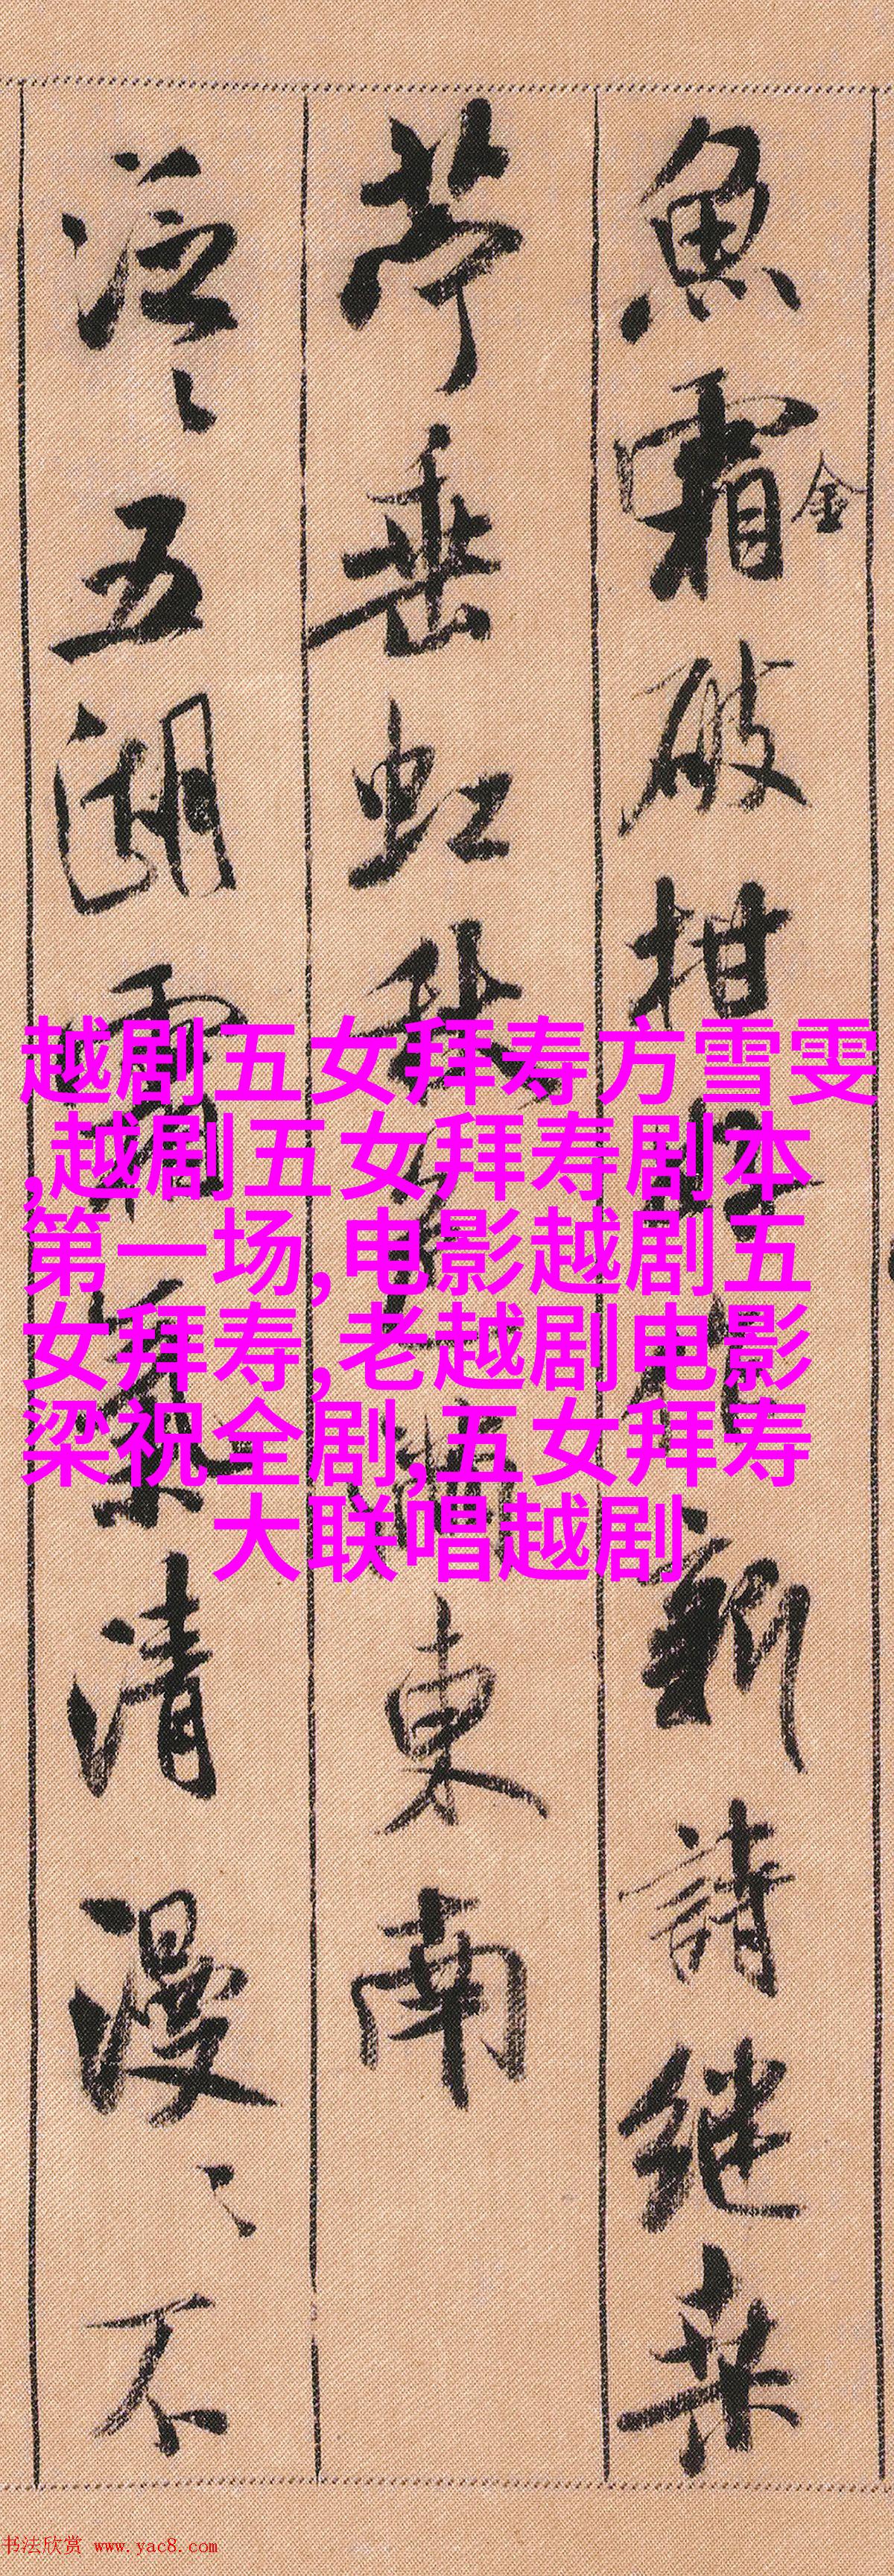 魚霜破柑好作新詩継桑
金
苧垂虹秋色滿東南
泛〻五湖霜氣清漫〻不
越剧五女拜寿方雪雯
,越剧五女拜寿剧本
第一场,电影越剧五
女拜寿,老越剧电影
梁祝全剧,五女拜寿
大联唱越剧
书法欣赏 www.yac8.com